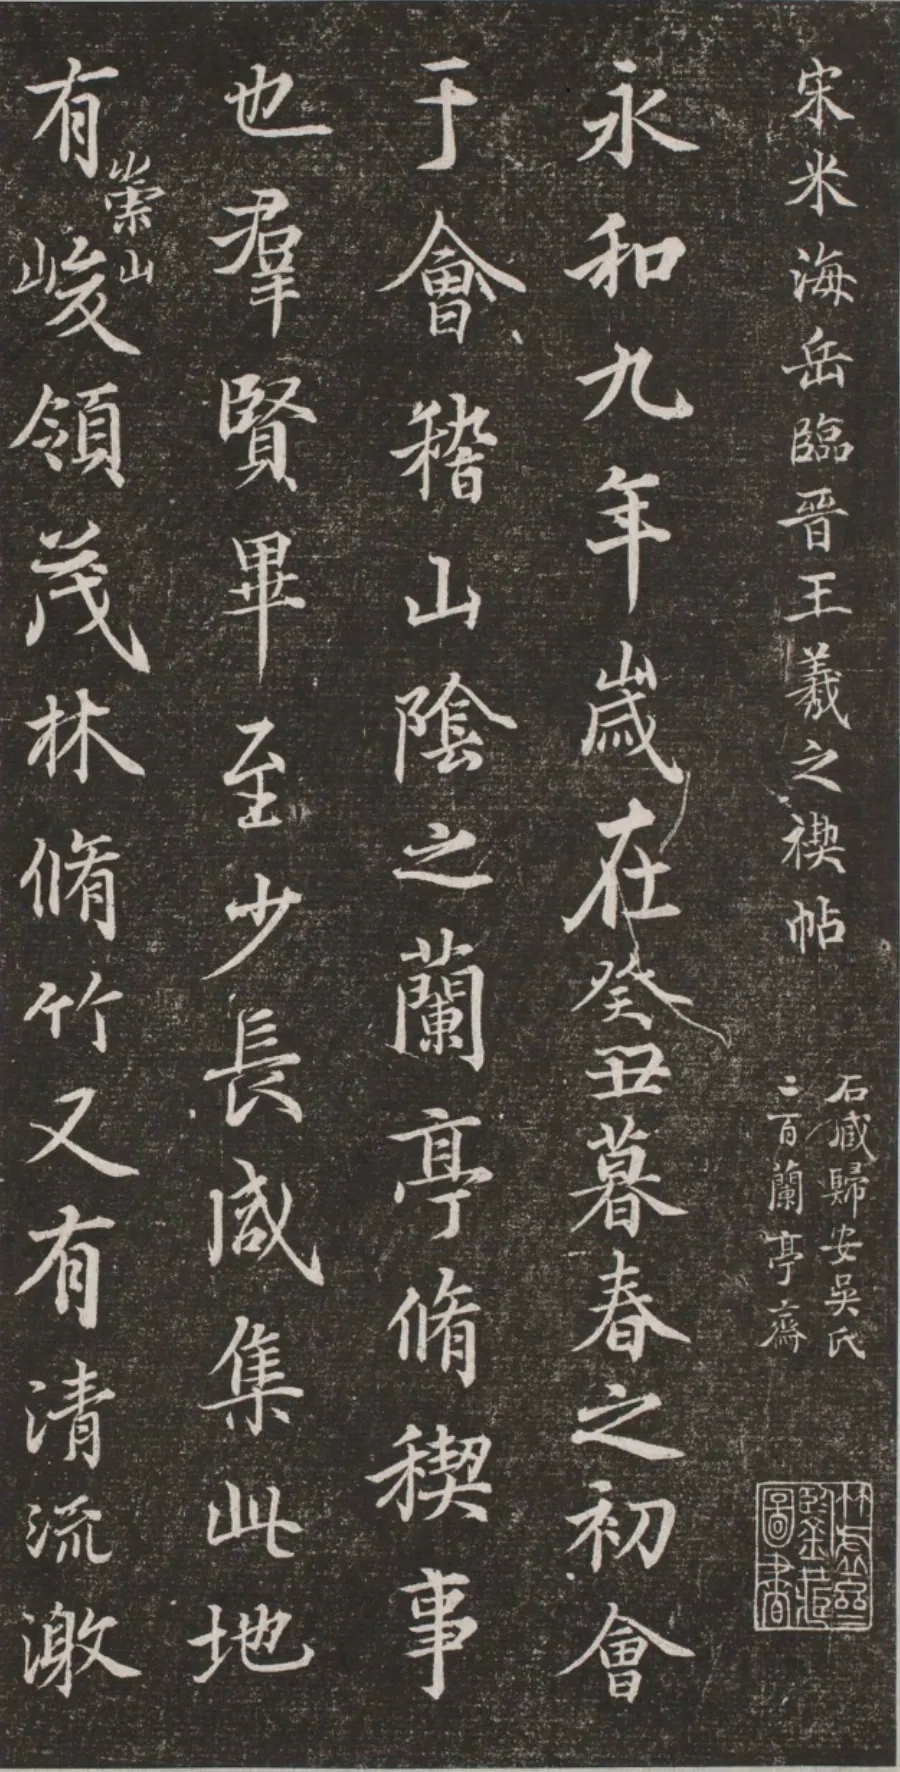 宋米海岳臨晉王羲之禊帖
石臧歸安吳氏
二百蘭亭齋
永和九年歲在癸丑暮春之初會
于會稽山陰之蘭亭脩稧事
也羣賢畢至少長咸集此地
有崇山峻領茂林脩竹又有清流激